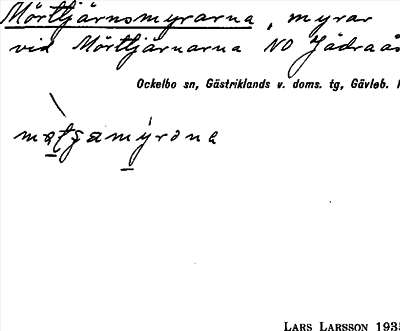 Mörttjärnsmyrarna, myrar
vid Mörttjärnarna NO Jädraås
Ockelbo sn, Gästriklands v. doms. tg, Gävleb. l
LARS LARSSON 1935